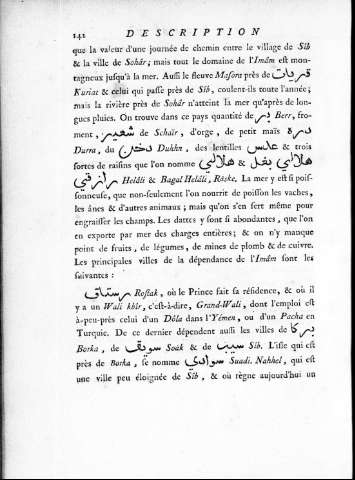 142 DESCRIPTION
que la valeur d'une journée de chemin entre le village de Sib
& la ville de Sohâr; mais tout le domaine de l'Imâm est mon-
tagneux jusqu'à la mer. Aussi le fleuve Masora près de قريات
Kuriat & celui qui passe près de Sib, coulent-ils toute l'année;
mais la rivière près de Sohâr n'atteint la mer qu'après de lon-
gues pluies. On trouve dans ce pays quantité de بر Berr, fro-
ment, شعير de Schaïr, d'orge, de petit maïs درة
Durra, du دخن Duhhn, des lentilles عدس & trois
sortes de raisins que l'on nomme هلالي & هلالي بغل
رازقي Helâli & Bagal Helâli, Râske. La mer y est si pois-
sonneuse, que non-seulement l'on nourrit de poisson les vaches,
les ânes & d'autres animaux; mais qu'on s'en sert même pour
engraisser les champs. Les dattes y sont si abondantes, que l'on
en exporte par mer des charges entières; & on n'y manque
point de fruits, de légumes, de mines de plomb & de cuivre.
Les principales villes de la dépendance de l'Imâm sont les
suivantes:
رستاق Rostak, où le Prince fait sa résidence, & où il
y a un Wali kbîr, c'est-à-dire, Grand-Wali, dont l'emploi est
à-peu-près celui d'un Dôla dans l'Yémen, ou d'un Pacha en
Turquie. De ce dernier dépendent aussi les villes de بركا
Borka, de سويق Soak & de سيب Sib. L'isle qui est
près de Borka, se nomme سوادي Suadi. Nahhel, qui est
une ville peu éloignée de Sib, & où règne aujourd'hui un